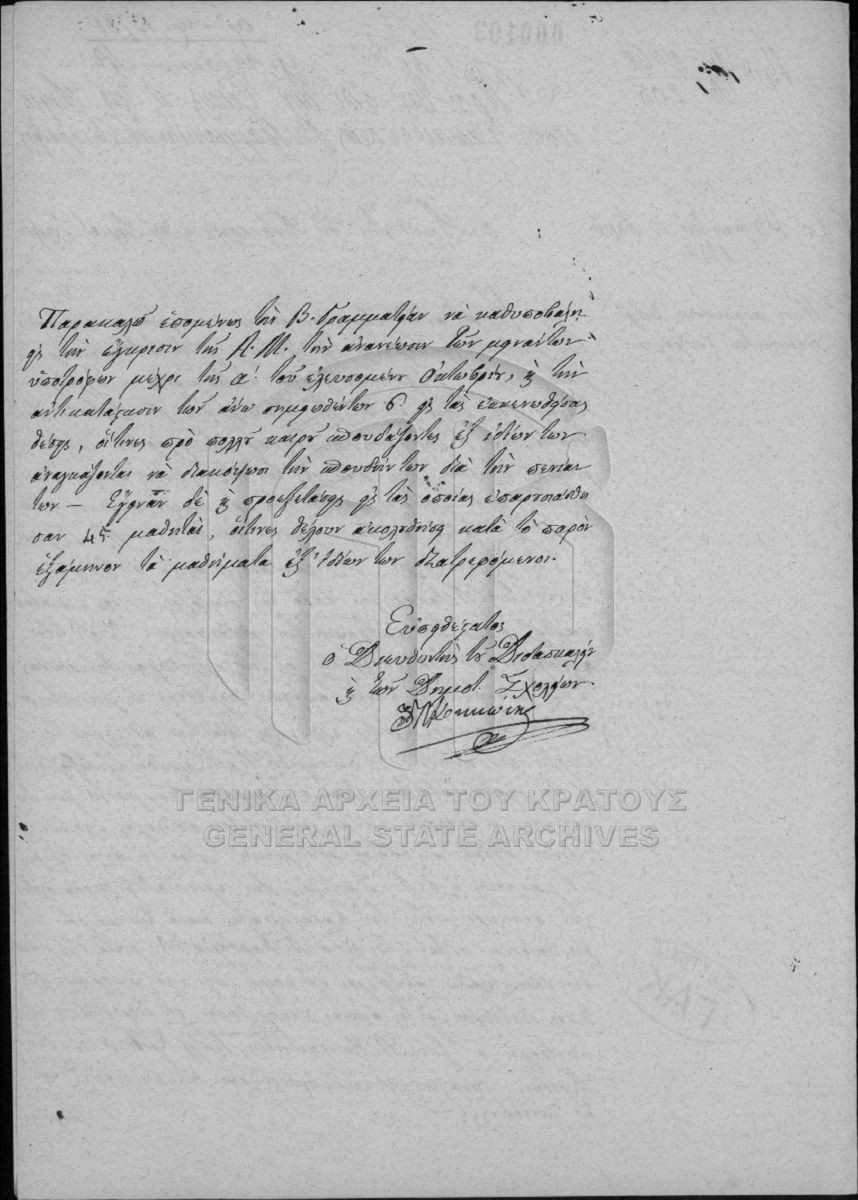 Παρακαλῶ ἑπομένως τὴν Β. Γραμματείαν νὰ καθυποβάλῃ
εἰς τὴν ἔγκρισιν τῆς Α.Μ. τὴν ἀνανέωσιν τῶν μεινάντων
ὑποτρόφων μέχρι τῆς α΄. τοῦ ἐλευσομένου Ὀκτωβρίου, καὶ τὴν
ἀντικατάστασιν τῶν ἄνω σημειωθέντων 6. εἰς τὰς ἐκκενωθείσας
θέσεις, οἵτινες πρὸ πολλοῦ καιροῦ σπουδάζοντες ἐξ ἰδίων των
ἀναγκάζονται νὰ διακόψωσι τὴν σπουδήν των διὰ τὴν πενίαν
των — Ἔγιναν δὲ καὶ προεξετάσεις εἰς τὰς ὁποίας
σαν 45 μαθηταὶ, οἵτινες θέλουν ἀκολουθήσει κατὰ τὸ παρὸν
ἑξάμηνον τὰ μαθήματα ἐξ ἰδίων των διατρεφόμενοι.
Εὐπειθέστατος
ὁ Διευθυντὴς τοῦ Διδασκαλείου
καὶ τῶν Δημοτ. Σχολείων
Κοκκώνης
ΓΕΝΙΚΑ ΑΡΧΕΙΑ ΤΟΥ ΚΡΑΤΟΥΣ
GENERAL STATE ARCHIVES